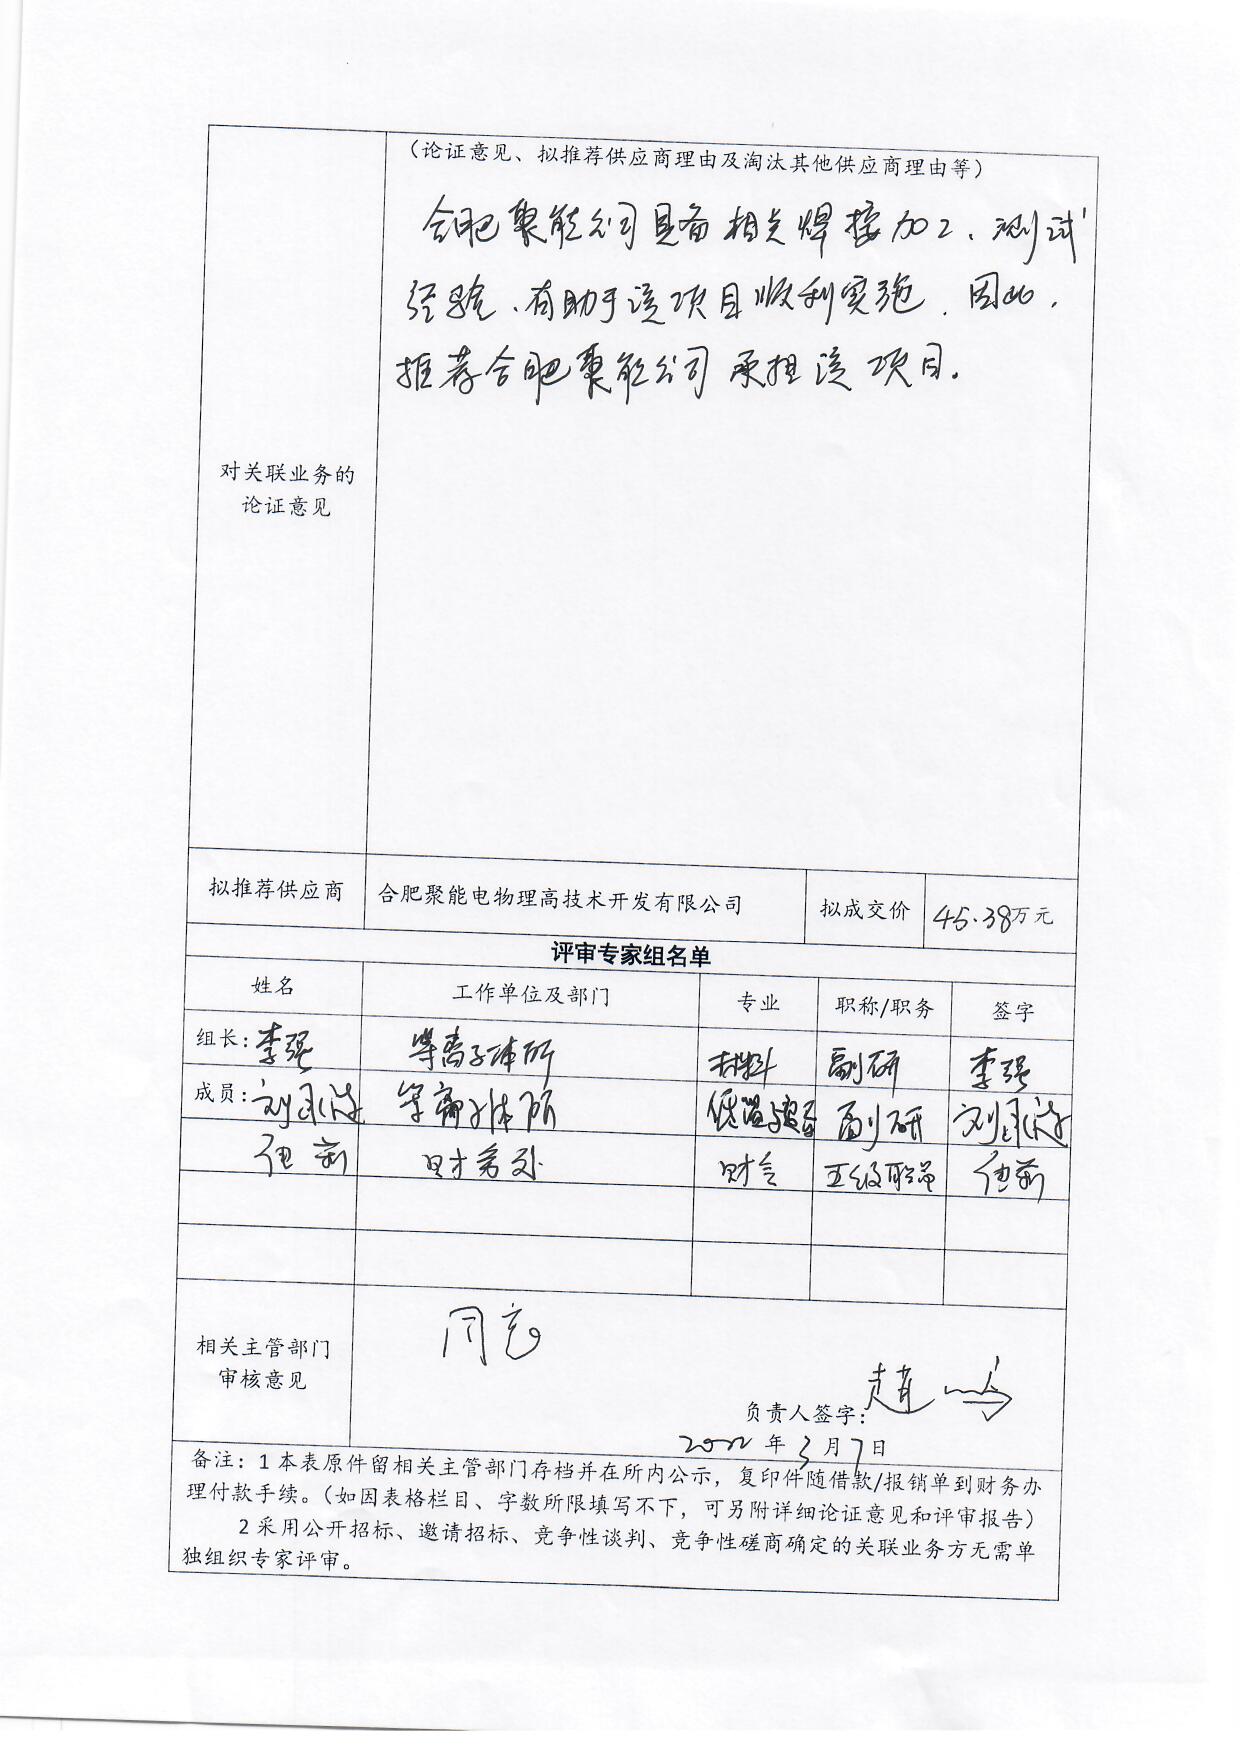 （论证意见、拟推荐供应商理由及淘汰其他供应商理由等）
合肥聚能公司具备相关焊接加工、测试
经验、有助于该项目顺利实施.因此，
推荐合肥聚能公司承担该项目.
对关联业务的
论证意见
拟推荐供应商 合肥聚能电物理高技术开发有限公司 拟成交价 45.38万元
评审专家组名单
姓名 工作单位及部门 专业 职称/职务 签字
组长：李强 等离子体所 材料 副研 李强
成员： 等离子体所 副研
财务处 财会 五级职员
相关主管部门
审核意见
同意
负责人签字：赵
2022年3月7日
备注：1本表原件留相关主管部门存档并在所内公示，复印件随借款/报销单到财务办
理付款手续。（如因表格栏目、字数所限填写不下，可另附详细论证意见和评审报告）
2采用公开招标、邀请招标、竞争性谈判、竞争性磋商确定的关联业务方无需单
独组织专家评审。